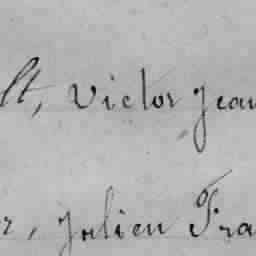 lt, Victor Jean
r, Julien Fra